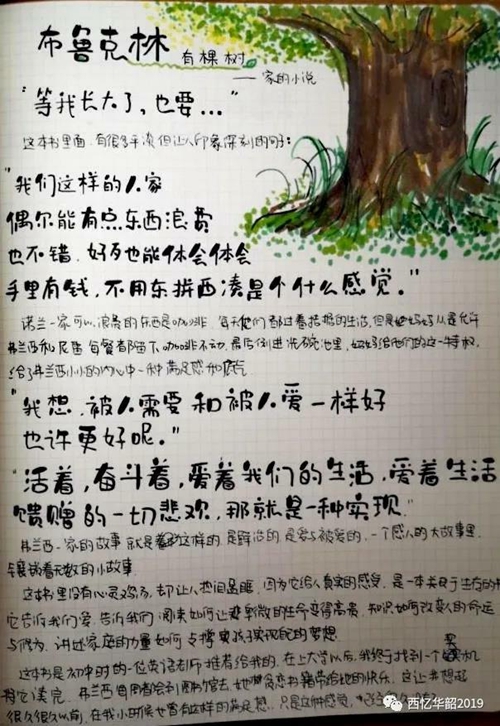 布鲁克林
有棵树
——家的小说
“等我长大了，也要...”
这本书里面，有很多平淡但让人印象深刻的句子：
“我们这样的人家
偶尔能有点东西浪费
也不错，好歹也能体会体会
手里有钱，不用东拼西凑是个什么感觉。”
诺兰一家可以浪费的东西是咖啡，每天他们都过着拮据的生活，但是她妈妈从是允许
弗兰西和尼雷每餐都留下咖啡不动，最后倒进洗碗池里，妈妈给他们的这一特权，
给了弗兰西小小的内心中一种满足感和底气
“我想，被人需要和被人爱一样好
也许更好呢。”
“活着，奋斗着，爱着我们的生活，爱着生活
馈赠的一切悲欢，那就是一种实现”
弗兰西一家的故事就是这样的，是 的是爱与被爱的，一个感人的大故事里
镶嵌着无数的小故事
这本书里没有心灵鸡汤，却让人热泪盈眶，因为它给人真实的感觉，是一本关于生存的书
它告诉我们爱，告诉我们 如何让卑微的生命变得高贵，知识如何改变人的命运
与 ，讲述家庭的力量如何支撑 孩子实现 的梦想
这本书是初中时的一位英语老师推荐给我的，在上大学以后，我终于找到一个 机
将它读完，弗兰西 图书馆去，她 书籍带给她的快乐，这让我想起
很久很久以前，在我小时候也曾有这样的满足感，只是这种感觉，
西忆华韶2019